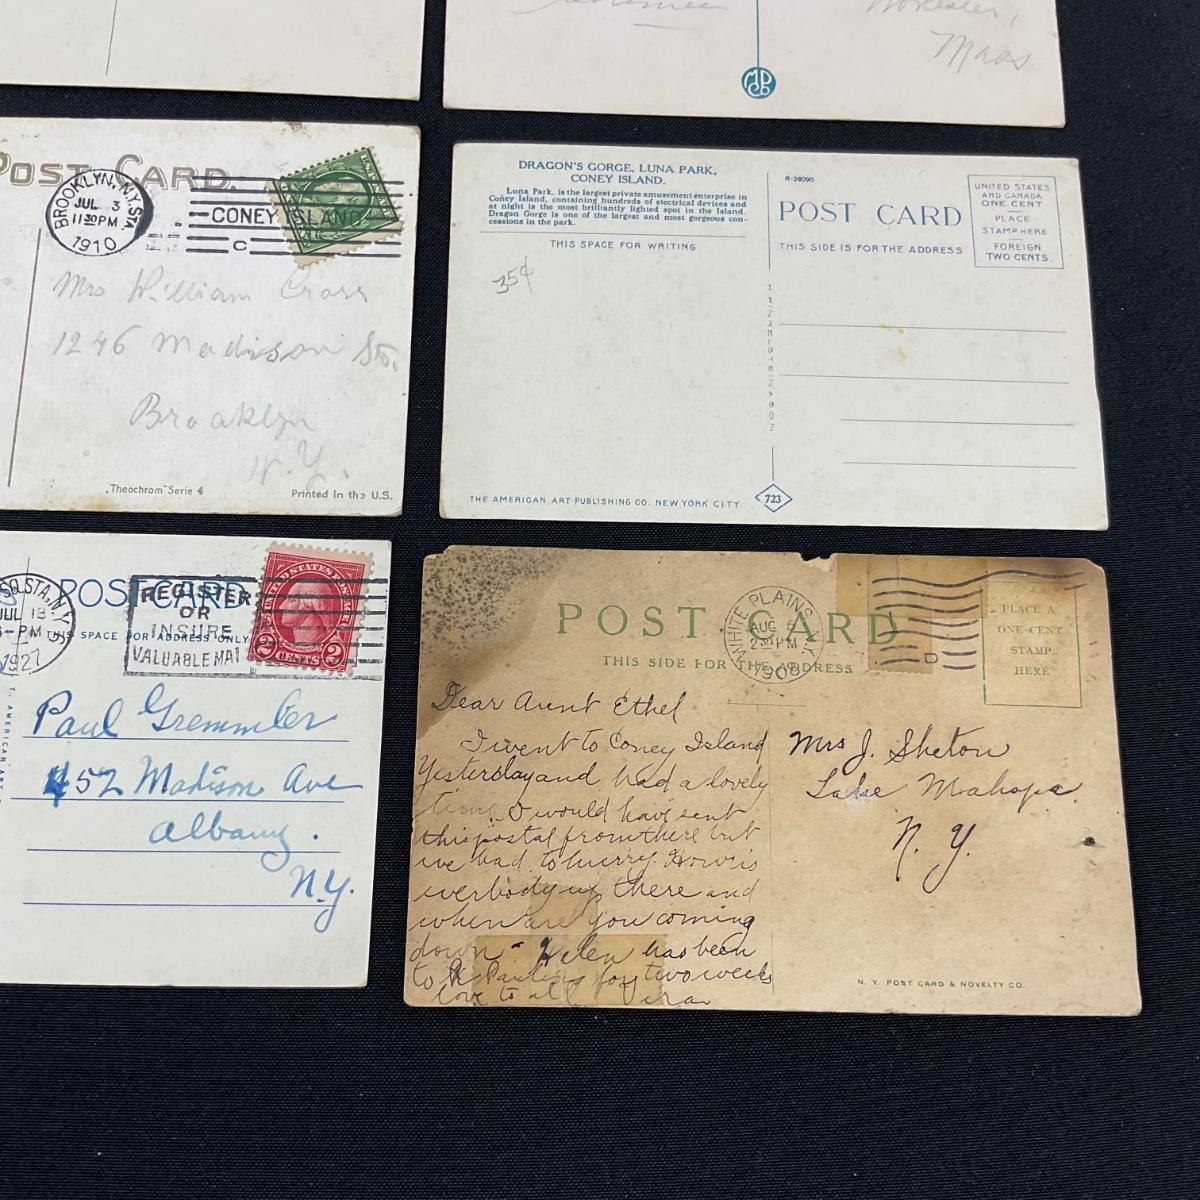 Worcester,
Mass
MPCo
POST CARD.
BROOKLYN, N.Y. STA.
JUL 3
11 30 PM
1910
CONEY ISLAND
C
Mrs William Cross
1246 Madison St.
Brooklyn
N.Y.
„Theochrom" Serie 4
Printed in the U.S.
DRAGON'S GORGE, LUNA PARK,
CONEY ISLAND.
Luna Park, is the largest private amusement enterprise in
Coney Island, containing hundreds of electrical devices and
at night is the most brilliantly lighted spot in the Island.
Dragon Gorge is one of the largest and most gorgeous con-
cessions in the park.
THIS SPACE FOR WRITING
35¢
R-38090
POST CARD
THIS SIDE IS FOR THE ADDRESS
UNITED STATES
AND CANADA
ONE CENT
PLACE
STAMP HERE
FOREIGN
TWO CENTS.
THE AMERICAN ART PUBLISHING CO. NEW YORK CITY
723
SQ. STA. N.Y.
JUL 18
PM
1927
POST CARD
THIS SPACE FOR ADDRESS ONLY
REGISTER
OR
INSURE
VALUABLE MAI
UNITED STATES POSTAGE
2 CENTS 2
T. AMERICAN ART
Paul Gremmler
452 Madison Ave
Albany.
N.Y.
POST CARD
THIS SIDE FOR THE ADDRESS
WHITE PLAINS, N.Y.
AUG 5
2 30 PM
1908
D
PLACE A
ONE-CENT
STAMP
HERE
Dear Aunt Ethel
I went to Coney Island
Yesterday and had a lovely
time. I would have sent
this postal from there but
we had to hurry. How is
everbody up there and
when are you coming
down - Helen has been
to Pauling for two weeks
love to all Ira
Mrs J. Shelton
Lake Mahopac.
N. Y.
N. Y. POST CARD & NOVELTY CO.